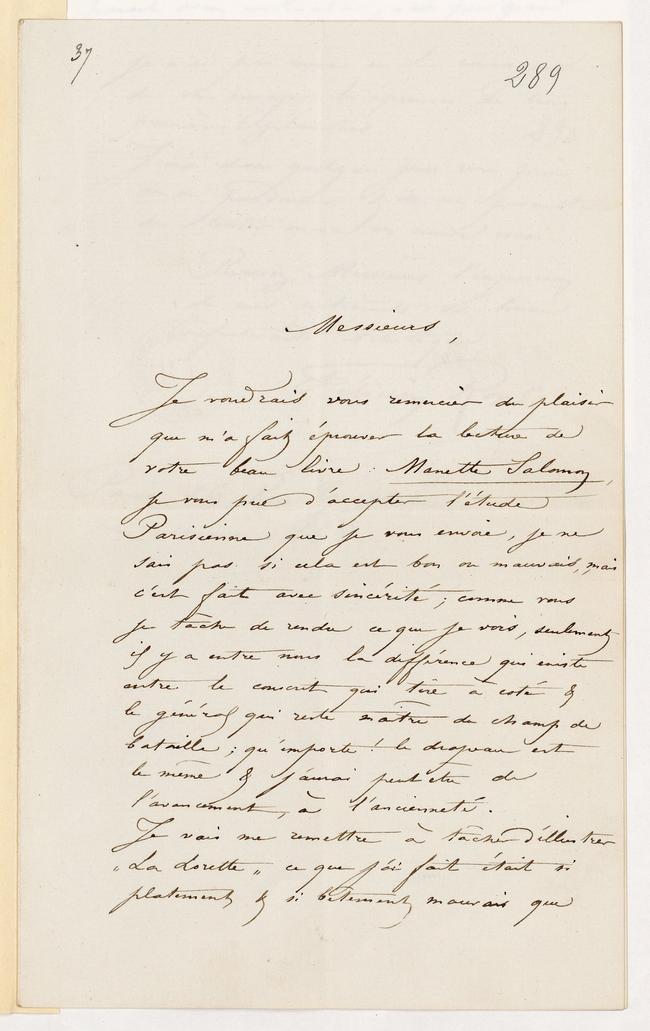 37
289
Messieurs,
Je voudrais vous remercier du plaisir
que m'a fait éprouver la lecture de
votre beau livre : Manette Salomon,
je vous prie d'accepter l'étude
Parisienne que je vous envoie, je ne
sais pas si cela est bon ou mauvais, mais
c'est fait avec sincérité ; comme vous
je tâche de rendre ce que je vois, seulement
il y a entre nous la différence qui existe
entre le conscrit qui tire à coté &
le général qui reste maître du champ de
bataille ; qu'importe ! le drapeau est
le même & j'aurai peut etre de
l'avancement, à l'ancienneté.
Je vais me remettre à tâcher d'illustrer
„La Lorette„ ce que j'ai fait était si
platement & si bêtement mauvais que